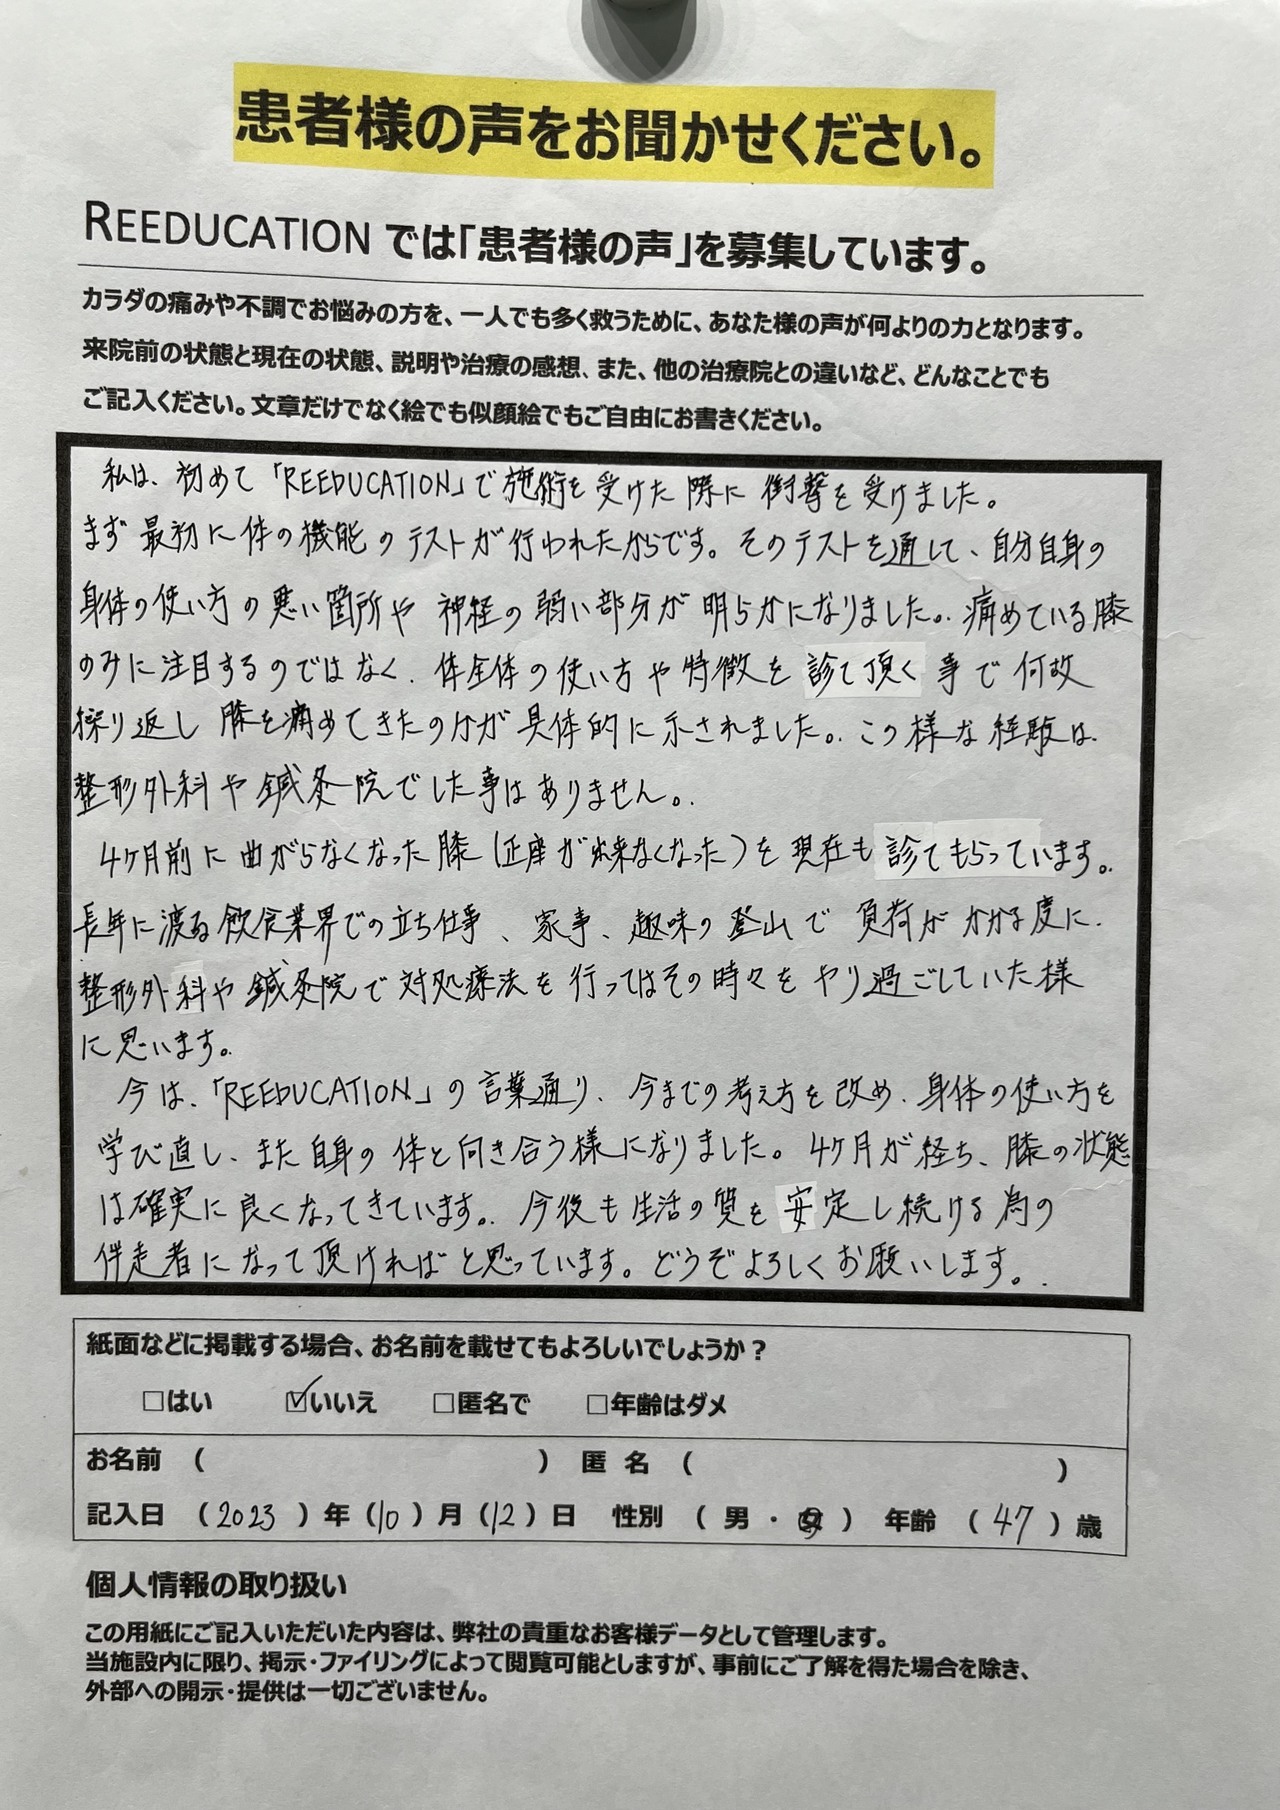 患者様の声をお聞かせください。
REEDUCATION では「患者様の声」を募集しています。
カラダの痛みや不調でお悩みの方を、一人でも多く救うために、あなた様の声が何よりの力となります。
来院前の状態と現在の状態、説明や治療の感想、また、他の治療院との違いなど、どんなことでも
ご記入ください。文章だけでなく絵でも似顔絵でもご自由にお書きください。
私は、初めて「REEDUCATION」で施術を受けた際に衝撃を受けました。
まず最初に体の機能のテストが行われたからです。そのテストを通して、自分自身の
身体の使い方の悪い箇所や神経の弱い部分が明らかになりました。痛めている膝
のみに注目するのではなく、体全体の使い方や特徴を診て頂く事で何故
繰り返し膝を痛めてきたのかが具体的に示されました。この様な経験は、
整形外科や鍼灸院でした事はありません。
4ヶ月前に曲がらなくなった膝(正座が出来なくなった)を現在も診てもらっています。
長年に渡る飲食業界での立ち仕事、家事、趣味の登山で負荷がかかる度に、
整形外科や鍼灸院で対処療法を行ってはその時々をやり過ごしていた様
に思います。
今は、「REEDUCATION」の言葉通り、今までの考え方を改め、身体の使い方を
学び直し、また自身の体と向き合う様になりました。4ヶ月が経ち、膝の状態
は確実に良くなってきています。今後も生活の質を安定し続ける為の
伴走者になって頂ければと思っています。どうぞよろしくお願いします。
紙面などに掲載する場合、お名前を載せてもよろしいでしょうか？
□はい ☑いいえ □匿名で □年齢はダメ
お名前 ( ) 匿名 ( )
記入日 (2023) 年 (10) 月 (12) 日 性別 (男・女) 年齢 (47) 歳
個人情報の取り扱い
この用紙にご記入いただいた内容は、弊社の貴重なお客様データとして管理します。
当施設内に限り、掲示・ファイリングによって閲覧可能としますが、事前にご了解を得た場合を除き、
外部への開示・提供は一切ございません。